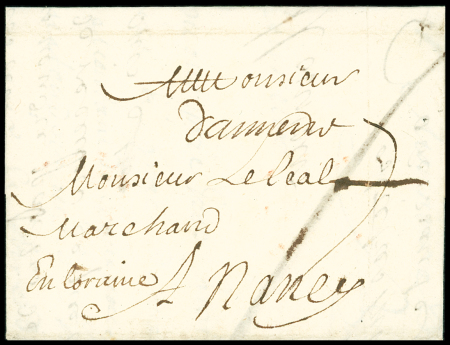 Monsieur
Monsieur Leleal
Marchand
En Loraine A Nancy